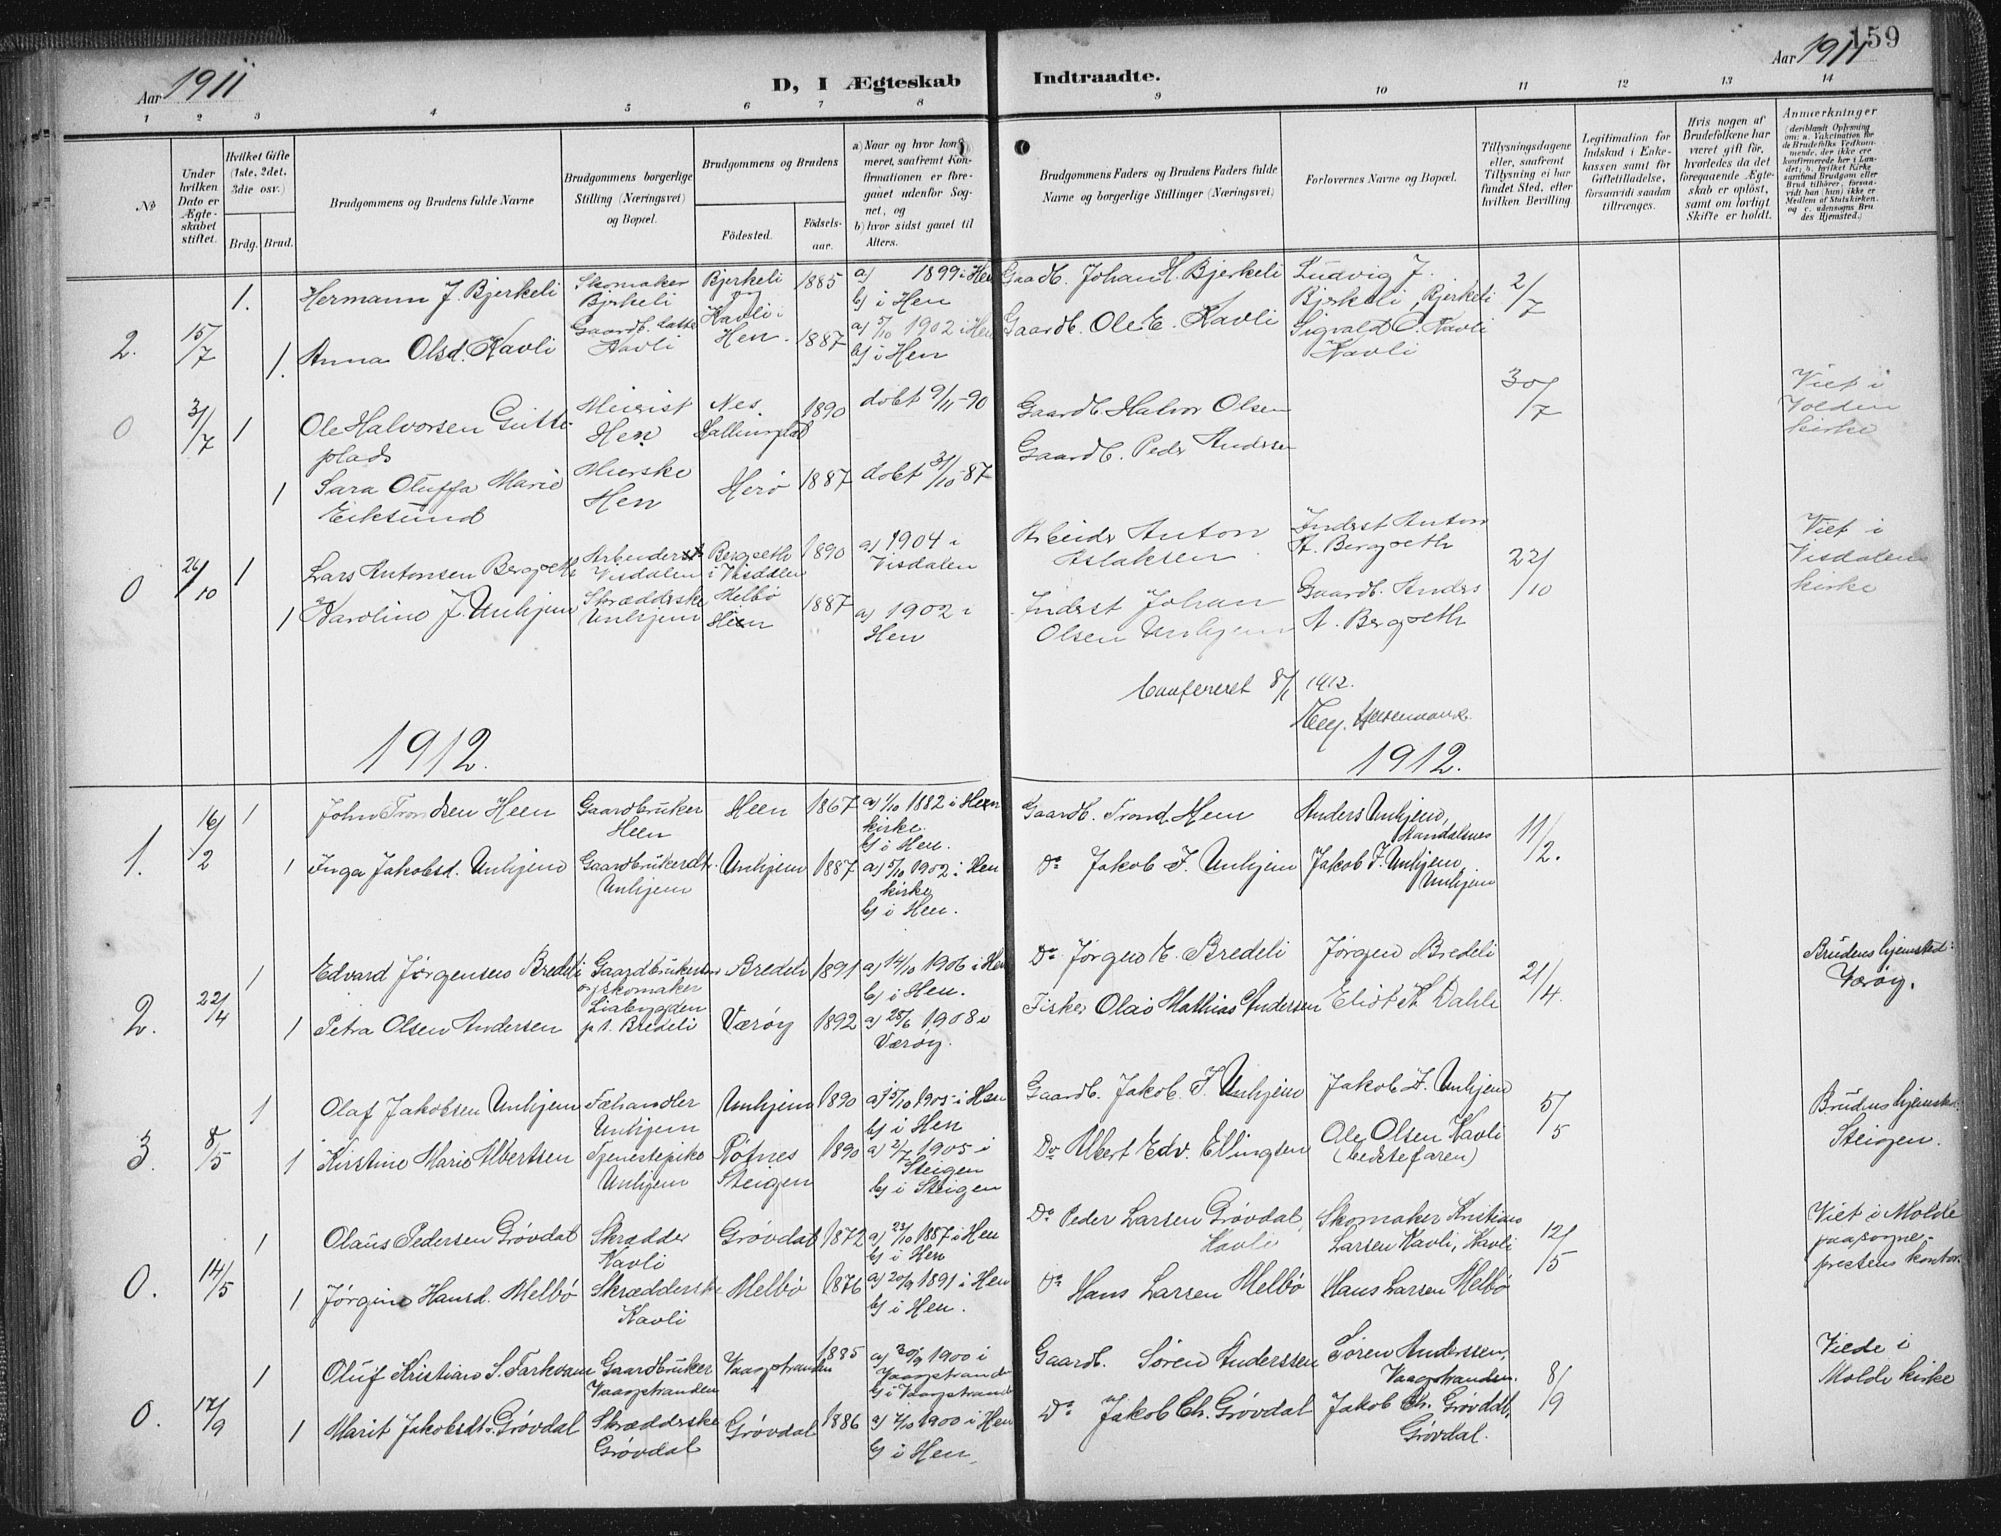 159
Aar 1911
D, I Ægteskab Indtraadte.
Aar 1911
1 2 3 4 5 6 7 8 9 10 11 12 13 14
No
Under hvilken Dato er Ægteskabet stiftet.
Hvilket Gifte (1ste, 2det, 3die osv.)
Brdg. Brud.
Brudgommens og Brudens fulde Navne
Brudgommens borgerlige Stilling (Næringsvei) og Bopæl.
Brudgommens og Brudens
Födested.
Födselsaar.
a) Naar og hvor konfirmeret, saafremt Konfirmationen er foregaaet udenfor Sognet, og
b) hvor sidst gaaet til Alters.
Brudgommens Faders og Brudens Faders fulde Navne og borgerlige Stillinger (Næringsvei)
Forlovernes Navne og Bopæl.
Tillysningsdagene eller, saafremt Tillysning ei har fundet Sted, efter hvilken Bevilling
Legitimation for Indskud i Enkekassen samt för Giftetilladelse, forsaavidt saadan tiltrænges.
Hvis nogen af Brudefolkene har været gift för, hvorledes da det foregaaende Ægteskab er oplöst, samt om lovligt Skifte er holdt.
Anmærkninger
2. 15/7
1. Hermann J. Bjerkeli Skomaker Bjerkeli Bjerkeli og 1885 a) 1899 i Hen b) i Hen Gaardb. Johan H. Bjerkeli Ludvig J. Bjerkeli, Bjerkeli 2/7
1. Anna Olsd. Kavli Gaardb. datter Kavli Kavli i Hen. 1887 a) 5/10 1902 i Hen b) i Hen Gaardb. Ole E. Kavli Sigvald O. Kavli Kavli
0 31/7
1 Ole Halvorsen Gutteplads Meierist Hen Nes. Hallingdal 1890 döbt 9/11-90 Gaardb. Halvor Olsen 30/7 Viet i Volden kirke
1 Sara Oluffa Marie Eiksund Meierske Hen Herö 1887 döbt 31/10-87 Gaardb. Peder Andersen
0 26/10
1 Lars Antonsen Bergseth Arbeider Visdalen Bergseth i Visdalen 1890 a) 1904 i Visdalen Arbeider Anton Aslaksen Inderst Anton A. Bergseth 22/10 Viet i Visdalens kirke
1 Karoline J. Unhjem Skrædderske Unhjem Melbö Hen 1887 a) 1902 i Hen Inderst Johan Olsen Unhjem Gaardb. Anders A. Bergseth
Confereret 8/1 1912.
1912. 1912.
1. 16/2
1 John Trondsen Heen Gaardbruker Heen Heen 1867 a) 1/10 1882 i Hen kirke. b) i Hen. Gaardb. Trond Heen Anders Unhjem, Aandalsnes 11/2.
1 Inga Jakobsd. Unhjem Gaardbrukerdt. Unhjem Unhjem 1887 a) 5/10 1902 i Hen kirke b) i Hen. Do Jakob J. Unhjem Jakob J. Unhjem Unhjem
2. 22/4
1 Edvard Jørgensen Bredeli Gaardbrukersøn og skomaker Bredeli 1891 a) 14/10 1906 i Hen b) i Hen. Do Jørgen E. Bredeli Jørgen Bredeli 21/4. Brudens hjemsted: Værøy.
1 Petra Olsen Andersen Liabygden p.t. Bredeli Værøy 1892 a) 28/6 1908 i Værøy. Fisker Olai Mathias Andersen Eliot A Dahle
3. 8/5
1 Olaf Jakobsen Unhjem Fæhandler Unhjem Unhjem 1890 a) 15/10 1905 i Hen b) i Hen Gaardb. Jakob J. Unhjem Jakob J. Unhjem 5/5 Brudens hjemsted: Steigen.
1 Kirstine Marie Albertsen Tjenestepike Unhjem Pötnes Steigen 1890 a) 2/7 1905 i Steigen b) i Steigen Do Albert Edv. Ellingsen Ole Olsen Kavli (bedstefaren)
0. 14/5
1 Olaus Pedersen Grövdal Skrædder Kavli Grövdal 1872 a) 23/10 1887 i Hen b) i Hen Do Peder Larsen Grövdal, Kavli Skomaker Kristian Larsen Kavli, Kavli 12/5 Viet i Molde paa sogneprestens kontor.
1 Jörgine Hansd. Melbö Skrædderske Kavli Melbö 1876 a) 20/9 1891 i Hen b) i Hen. Do Hans Larsen Melbö Hans Larsen Melbö
0. 17/9
1 Oluf Kristian S. Farkvam Gaardbruker Vaagstranden Vaagstranden 1885 a) 30/9 1900 i Vaagstranden b) i Vaagstranden Gaardb. Sören Anderssen Sören Anderssen, Vaagstranden. 8/9 Viede i Molde kirke
1 Marit Jakobsdt. Grövdal Skrædderske Grövdal Grövdal 1886 a) 7/10 1900 i Hen b) i Hen. Do Jakob Ch. Grövdal Jakob Ch. Grövdal, Grövdal.